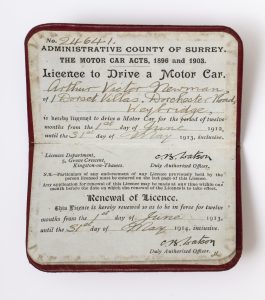 No. 24641.
ADMINISTRATIVE COUNTY OF SURREY.
THE MOTOR CAR ACTS, 1896 and 1903.
Licence to Drive a Motor Car.
Arthur Victor Newman
of 1 Dorset Villas, Dorchester Road,
Weybridge,
is hereby licensed to drive a Motor Car for the period of twelve
months from the 1st day of June 1912,
until the 31st day of May 1913, inclusive.
Licence Department,
5, Grove Crescent,
Kingston-on-Thames.
O. W. Watson
Duly Authorised Officer.
N.B.—Particulars of any endorsement of any Licence previously held by the
person licensed must be entered on the last page of this Licence.
Any application for renewal of this Licence may be made at any time within one
month before the date on which the renewal of the Licence is to take effect.
Renewal of Licence.
This Licence is hereby renewed so as to be in force for twelve
months from the 1st day of June 1913,
until the 31st day of May 1914, inclusive.
O. W. Watson
Duly Authorised Officer.